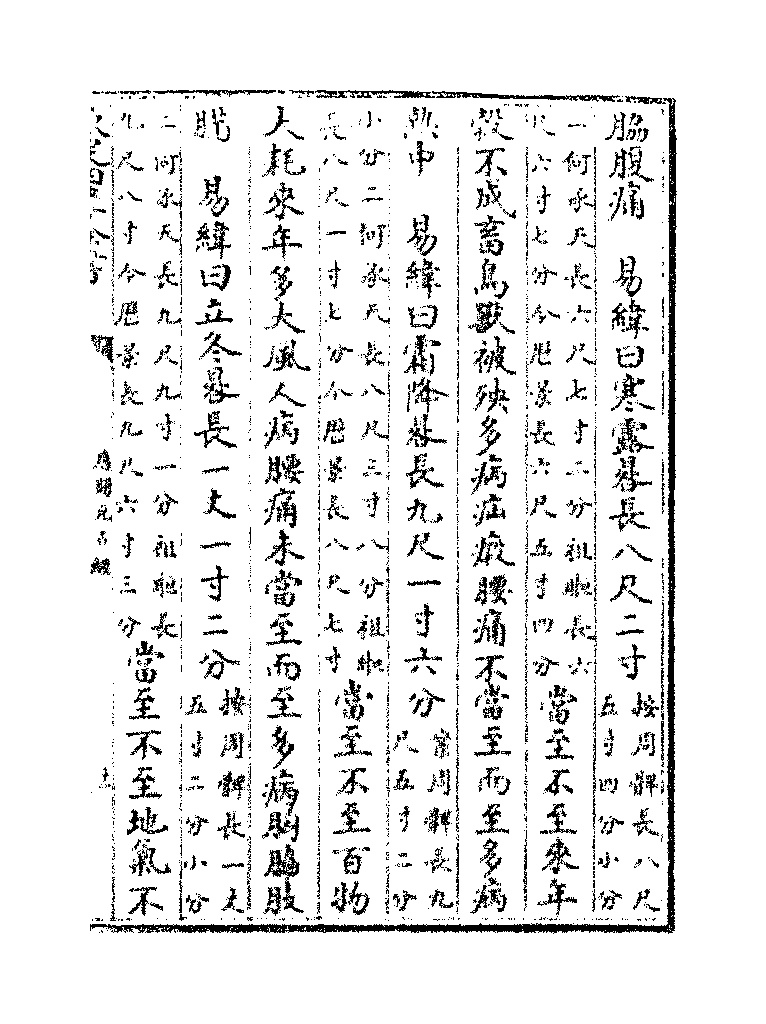 脇腹痛　易緯曰寒露晷長八尺二寸按周髀長八尺五寸四分小分
一何承天長六尺七寸二分祖暅長六尺六寸七分今歷景長六尺五寸四分當至不至來年
穀不成畜鳥獸被殃多病疝瘕腰痛不當至而至多病
熱中　易緯曰霜降晷長九尺一寸六分案周髀長九尺五寸二分
小分二何承天長八尺三寸八分祖暅長八尺一寸七分今歷景長八尺七寸當至不至百物
大耗來年多大風人病腰痛未當至而至多病胸脇肢
易緯曰立冬晷長一丈一寸二分按周髀長一丈五寸二分小分
二何承天長九尺九寸一分祖暅長九尺八寸今歷景長九尺六寸三分當至不至地氣不
欽定四庫全書
唐開元占經